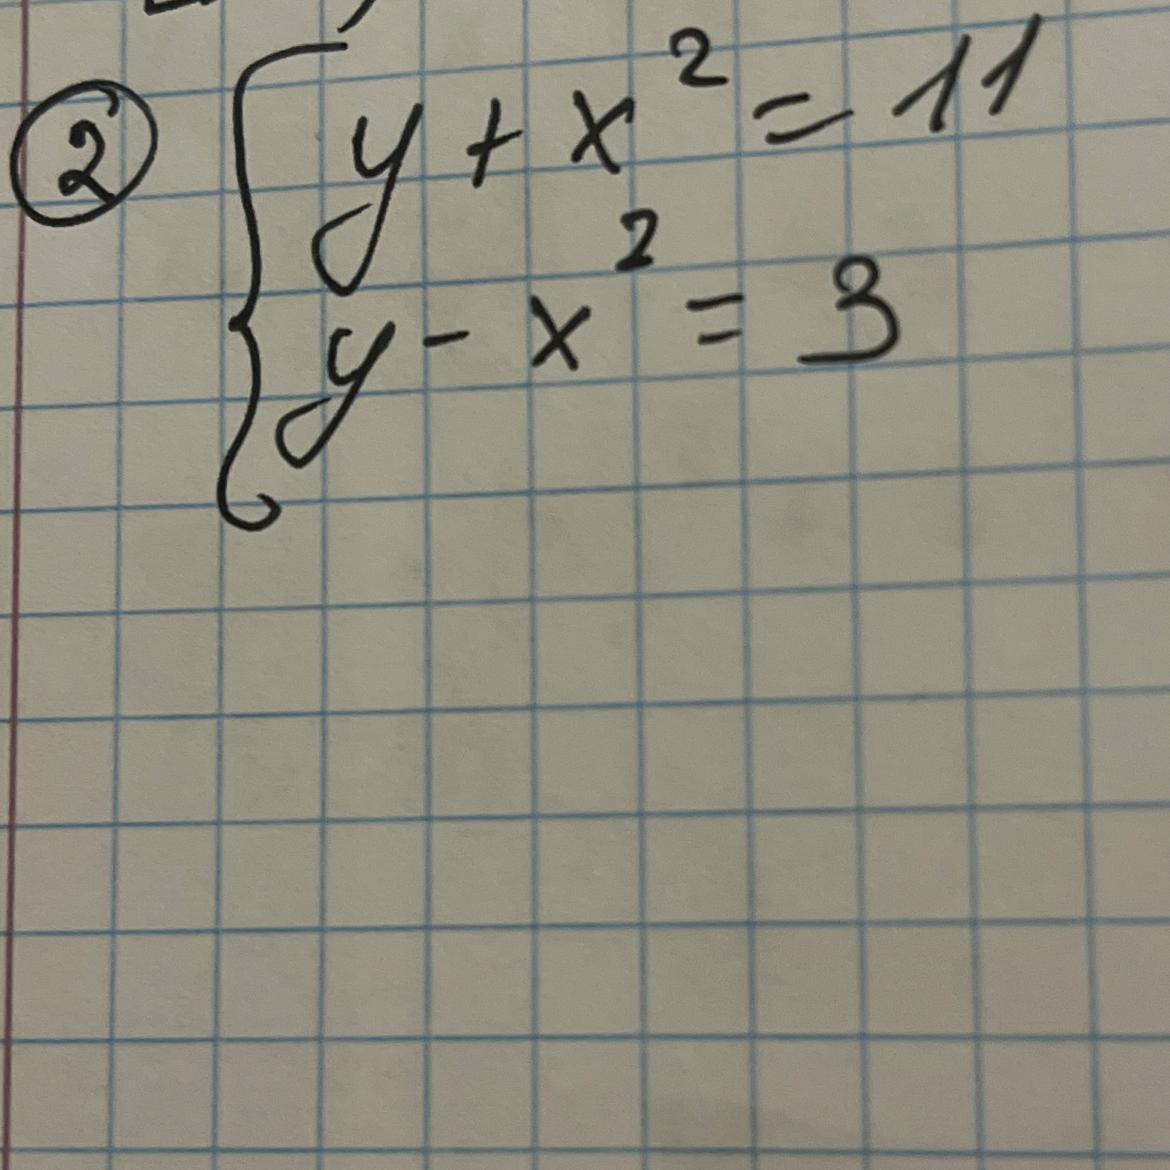 ② { y + x² = 11
y - x² = 3